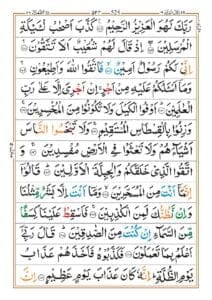 رَبَّكَ لَهُوَ الْعَزِيْزُ الرَّحِيْمُ كَذَّبَ اَصْحٰبُ لْـَٔيْكَةِ
الْمُرْسَلِيْنَ اِذْ قَالَ لَهُمْ شُعَيْبٌ اَلَا تَتَّقُوْنَ
اِنِّيْ لَكُمْ رَسُوْلٌ اَمِيْنٌ فَاتَّقُوا اللّٰهَ وَاَطِيْعُوْنِ
وَمَآ اَسْـَٔلُكُمْ عَلَيْهِ مِنْ اَجْرٍ اِنْ اَجْرِيَ اِلَّا عَلٰى رَبِّ
الْعٰلَمِيْنَ اَوْفُوا الْكَيْلَ وَلَا تَكُوْنُوْا مِنَ الْمُخْسِرِيْنَ
وَزِنُوْا بِالْقِسْطَاسِ الْمُسْتَقِيْمِ وَلَا تَبْخَسُوا النَّاسَ
اَشْيَآءَهُمْ وَلَا تَعْثَوْا فِي الْاَرْضِ مُفْسِدِيْنَ
وَاتَّقُوا الَّذِيْ خَلَقَكُمْ وَالْجِبِلَّةَ الْاَوَّلِيْنَ قَالُوْٓا
اِنَّمَآ اَنْتَ مِنَ الْمُسَحَّرِيْنَ وَمَآ اَنْتَ اِلَّا بَشَرٌ مِّثْلُنَا
وَاِنْ نَّظُنُّكَ لَمِنَ الْكٰذِبِيْنَ فَاَسْقِطْ عَلَيْنَا كِسَفًا
مِّنَ السَّمَآءِ اِنْ كُنْتَ مِنَ الصّٰدِقِيْنَ قَالَ رَبِّيْٓ
اَعْلَمُ بِمَا تَعْمَلُوْنَ فَكَذَّبُوْهُ فَاَخَذَهُمْ عَذَابُ
يَوْمِ الظُّلَّةِ اِنَّهٗ كَانَ عَذَابَ يَوْمٍ عَظِيْمٍ اِنَّ